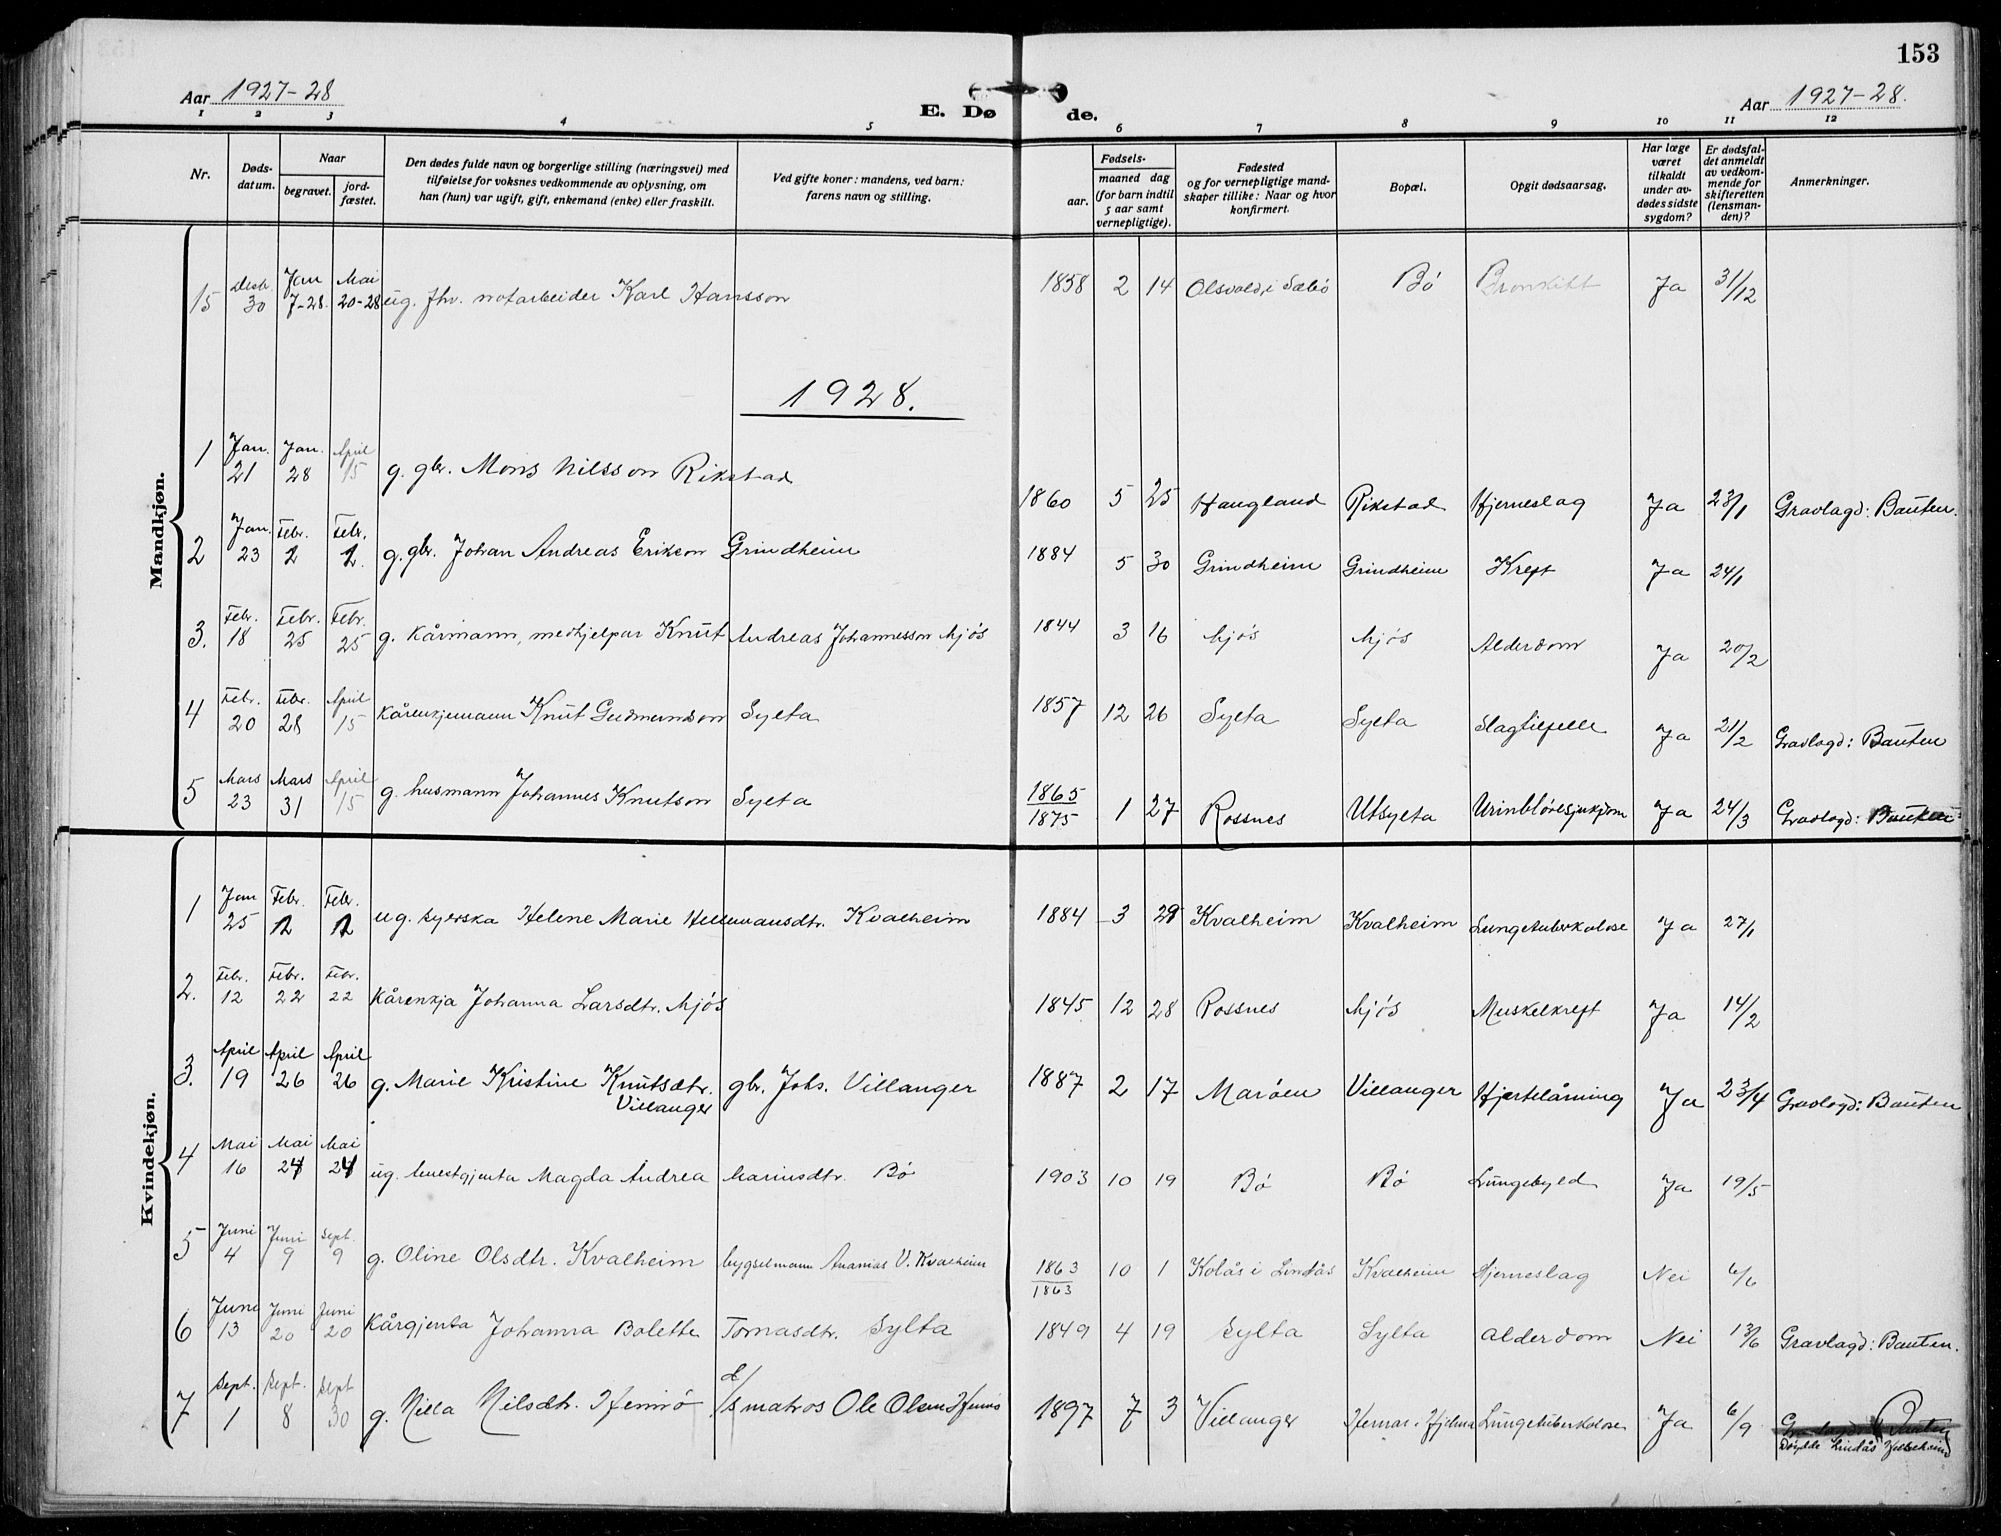 153
Aar 1927-28
E. Dø de.
Aar 1927-28.
1 2 3 4 5 6 7 8 9 10 11 12
Nr.
Døds-
datum.
Naar
begravet.
jord-
fæstet.
Den dødes fulde navn og borgerlige stilling (næringsvei) med
tilføielse for voksnes vedkommende av oplysning, om
han (hun) var ugift, gift, enkemand (enke) eller fraskilt.
Ved gifte koner: mandens, ved barn:
farens navn og stilling.
Fødsels-
aar.
maaned dag
(for barn indtil
5 aar samt
vernepligtige).
Fødested
og for vernepligtige mand-
skaper tillike: Naar og hvor
konfirmert.
Bopæl.
Opgit dødsaarsag.
Har læge
været
tilkaldt
under av-
dødes sidste
sygdom?
Er dødsfal-
det anmeldt
av vedkom-
mende for
skifteretten
(lensman-
den)?
Anmerkninger.
Mandkjøn.
15 Desbr. 30 Jan 7-28. Mai 20-28 ug. fhv. notarbeider Karl Hansson 1858 2 14 Olsvold, i Sæbø Bø Bronkitt Ja 31/12
1928.
1 Jan. 21 Jan. 28 April 15 g. gbr. Mons Nilsson Rikstad 1860 5 25 Haugland Rikstad Hjerneslag Ja 23/1 Gravlagd: Bauten.
2 Jan. 23 Febr. 2 Febr. 2. g. gbr. Johan Andreas Erikson Grindheim 1884 5 30 Grindheim Grindheim Kreft Ja 24/1
3. Febr. 18 Febr. 25 Febr. 25 g. kårmann, medhjelpar Knut Andreas Johannesson Mjøs 1844 3 16 Mjøs Mjøs Alderdom Ja 20/2
4 Febr. 20 Febr. 28 April 15 kårenkjemann Knut Gudmundson Sylta 1857 12 26 Sylta Sylta Slagtilfelle Ja 21/2 Gravlagd: Bauten
5 Mars 23 Mars 31 April 15 g. husmann Johannes Knutson Sylta 1865/1875 1 27 Rossnes Utsylta Urinbløresjukdom Ja 24/3 Gravlagd: Bauten
Kvindekjøn.
1 Jan 25 Febr. 2 Febr. 2 ug. syerska Helene Marie Hellemansdtr. Kvalheim 1884 3 29 Kvalheim Kvalheim Lungetuberkolose Ja 27/1
2. Febr. 12 Febr. 22 Febr. 22 kårenkja Johanna Larsdtr. Mjøs 1845 12 28 Rossnes Mjøs Muskelkreft Ja 14/2
3. April 19 April 26 April 26 g. Marie Kristine Knutsdtr. gbr. Johs. Villanger 1887 2 17 Marøen Villanger Hjertelåming Ja 23/4 Gravlagd: Bauten
Villanger
4 Mai 16 Mai 24 Mai 24 ug. tenestgjenta Magda Andrea Mariusdtr. Bø 1903 10 19 Bø Bø Lungebyld Ja 19/5
5 Juni 4 Juni 9 Sept. 9 g. Oline Olsdtr. Kvalheim bygselmann Ananias V. Kvalheim 1863/1863 10 1 Kolås i Lindås Kvalheim Hjerneslag Nei 6/6
6 Juni 13 Juni 20 Juni 20 kårgjenta Johanna Bolette Tomasdtr. Sylta 1849 4 19 Sylta Sylta alderdom Nei 13/6 Gravlagd: Bauten.
7 Sept. 1 Sept. 8 Sept 30 g. Nilla Nilsdtr. Hernø d/s matros Ole Olsen Hernø 1897 7 3 Villanger Hernar i Hjelma Lungetuberkolose Ja 6/9 Gravlagd: Bauten
Døydde Lindås